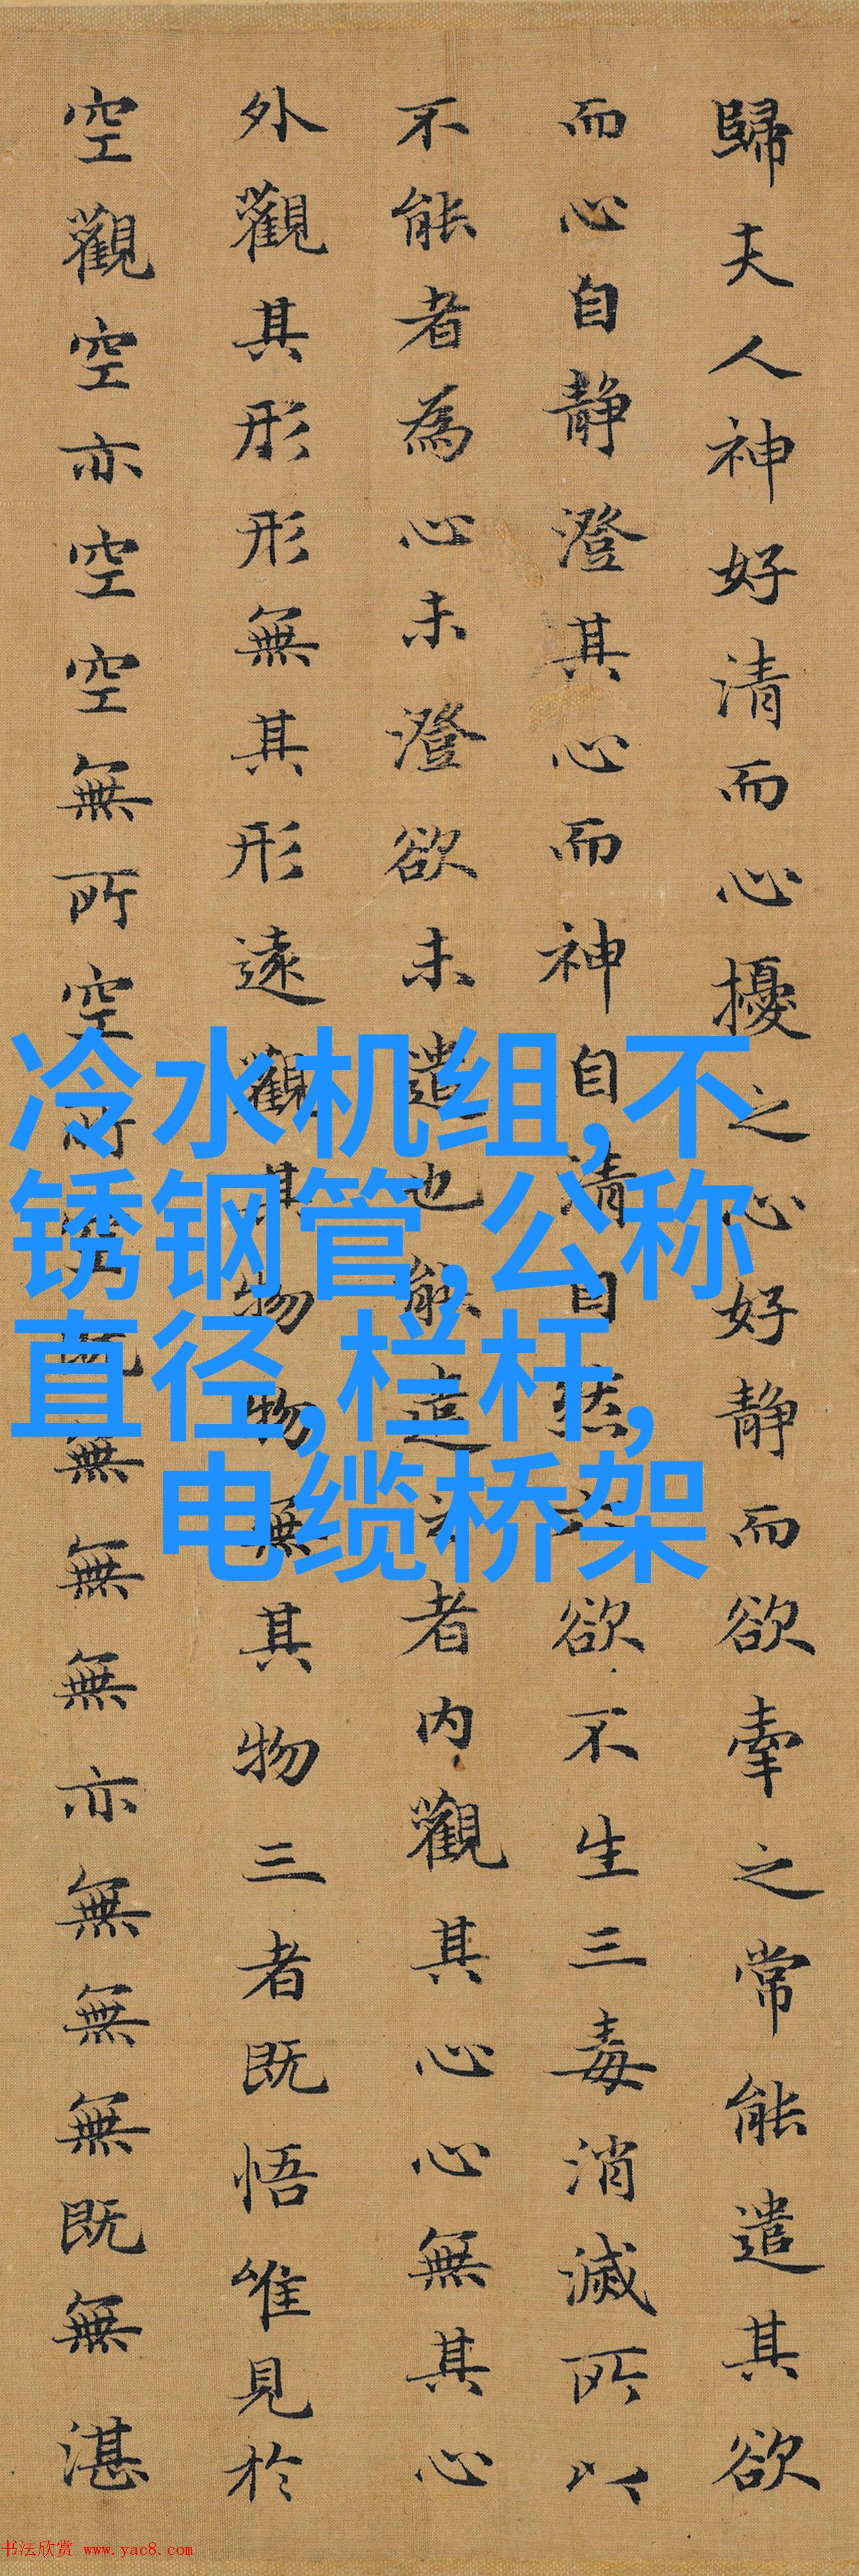 歸夫人神好清而心擾之心好静而欲牽之常能遣其欲
而心自静澄其心而神自清自然六欲不生三毒消滅所以
不能者為心未澄欲未遣也能遣之者内觀其心心無其心
外觀其形形無其形遠觀其物物無其物三者既悟唯見於
空觀空亦空空無所空所空既無無無亦無無無既無湛
冷水机组,不
锈钢管,公称
直径,栏杆,
电缆桥架
书法欣赏 www.yac8.com